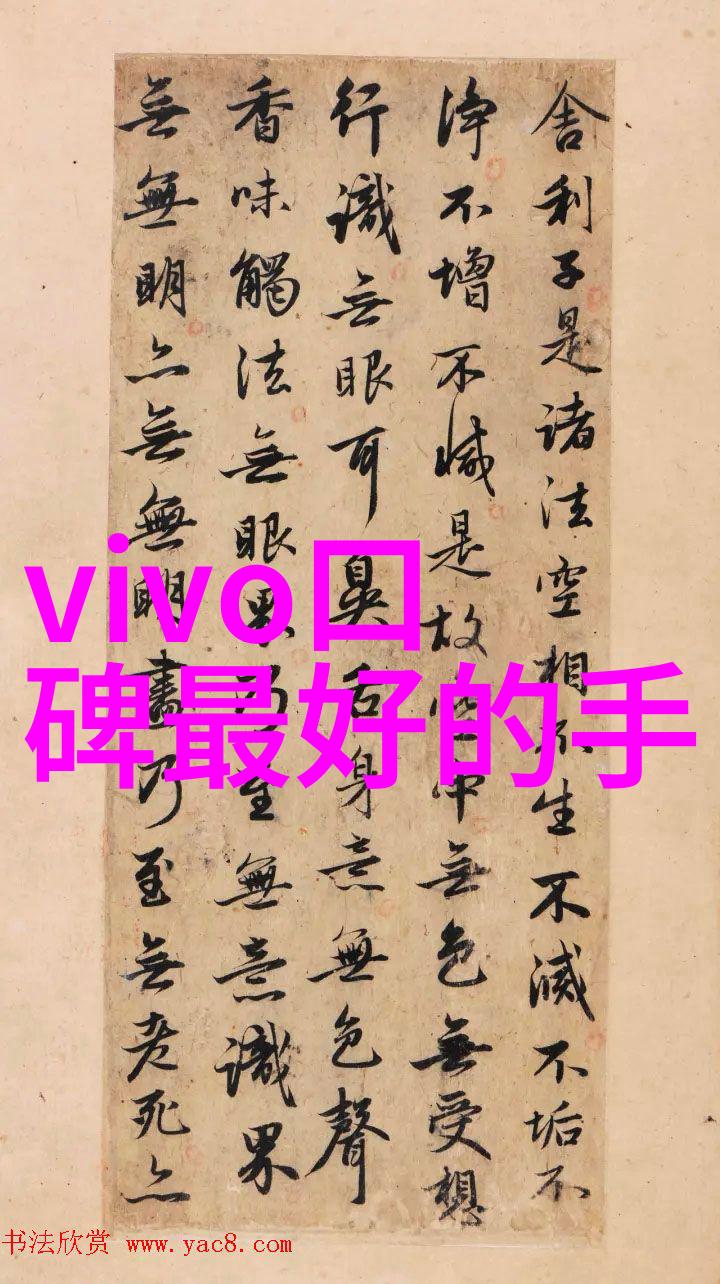 舍利子是諸法空相不生不滅不垢不
淨不增不減是故空中無色無受想
行識無眼耳鼻舌身意無色聲
香味觸法無眼界乃至無意識界
無無明亦無無明盡乃至無老死亦
vivo口
碑最好的手
书法欣赏 www.yac8.com